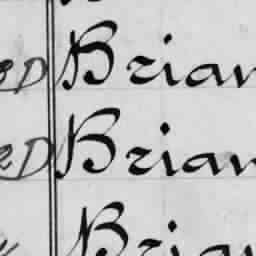 D Brian
2D Brian
Brian